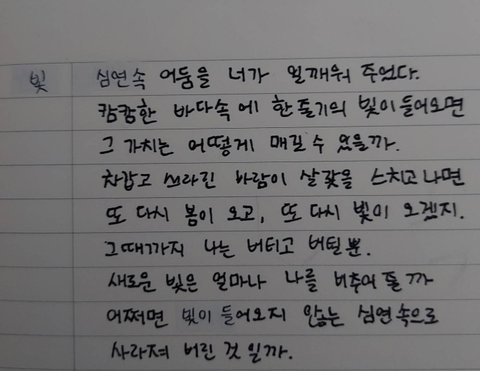 빛
심연속 어둠을 너가 일깨워 주었다.
캄캄한 바다속에 한줄기의 빛이 들어오면
그 가치는 어떻게 매길 수 있을까.
차갑고 쓰라린 바람이 살갗을 스치고 나면
또 다시 봄이 오고, 또 다시 빛이 오겠지.
그때까지 나는 버티고 버틸 뿐.
새로운 빛은 얼마나 나를 비추어 줄까
어쩌면 빛이 들어오지 않는 심연속으로
사라져 버린 것 일까.